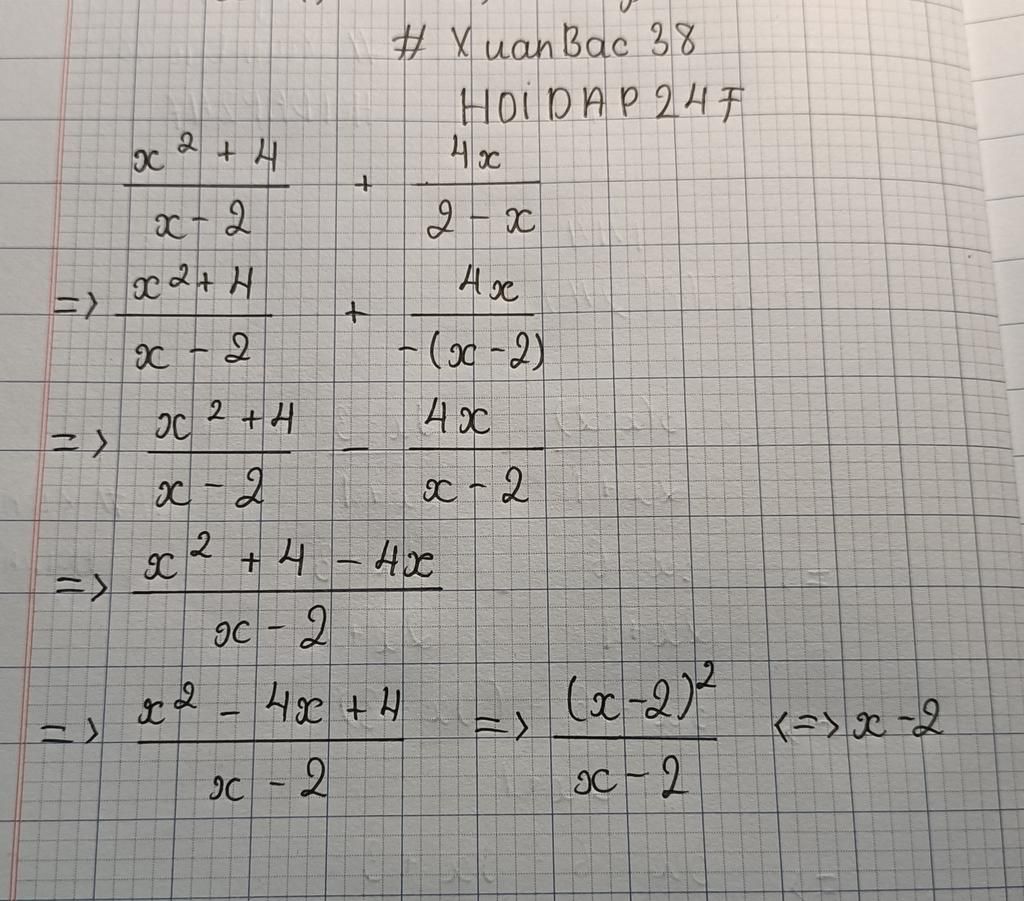 # XuanBac 38
HOiDAP247
x² + 4 / x - 2 + 4x / 2 - x
=> x² + 4 / x - 2 + 4x / -(x - 2)
=> x² + 4 / x - 2 - 4x / x - 2
=> x² + 4 - 4x / x - 2
=> x² - 4x + 4 / x - 2 => (x - 2)² / x - 2 <=> x - 2